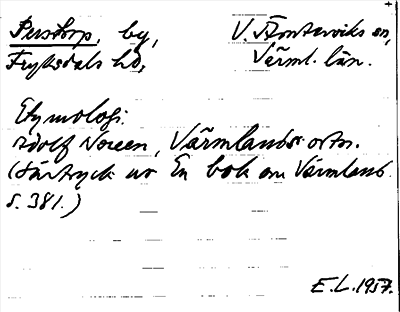 Perstorp, by, V. Ämterviks sn,
Fryksdals hd, Värml. län.
Etymologi.
Adolf Noreen, Värmlands ortn.
(Särtryck ur En bok om Värmland.
s. 381.)
E.L. 1957.